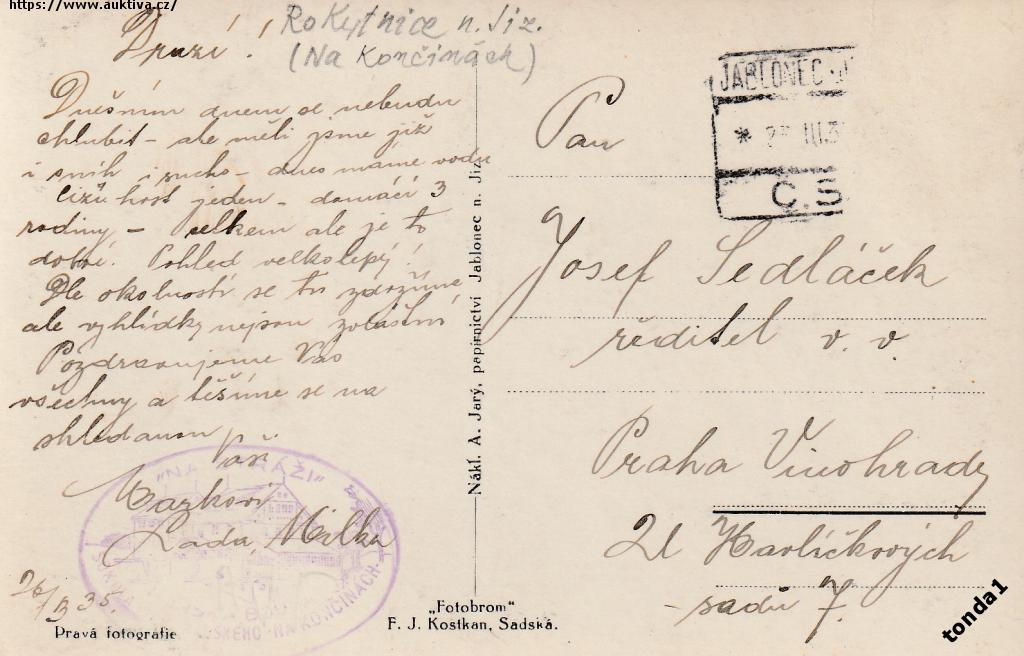 https://www.auktiva.cz/
Rokytnice n. Jiz.
(Na Končinách)
Drazí!
Dnešním dnem se nebudu
chlubit – ale měli jsme již
i sníh i sucho – dnes máme vodu
Cizí host jeden – domácí 3
rodiny – celkem ale je to
dobré. Pohled velkolepý!
Dle okolností se tu zdržíme
ale vyhlídky nejsou zvláštní
Pozdravujeme Vás
všechny a těšíme se na
shledanou Vaši
Mazkovi
Láda, Milka
35.
"NA
NA KONČINÁCH
Pravá fotografie
Nákl. A. Jarý, papírnictví Jablonec n. Jiz.
„Fotobrom"
F. J. Kostkan, Sadská.
JABLONEC
III 3
Č.S
Pan
Josef Sedláček
ředitel v. v.
Praha Vinohrady
Havlíčkových
sadů 7.
tonda1